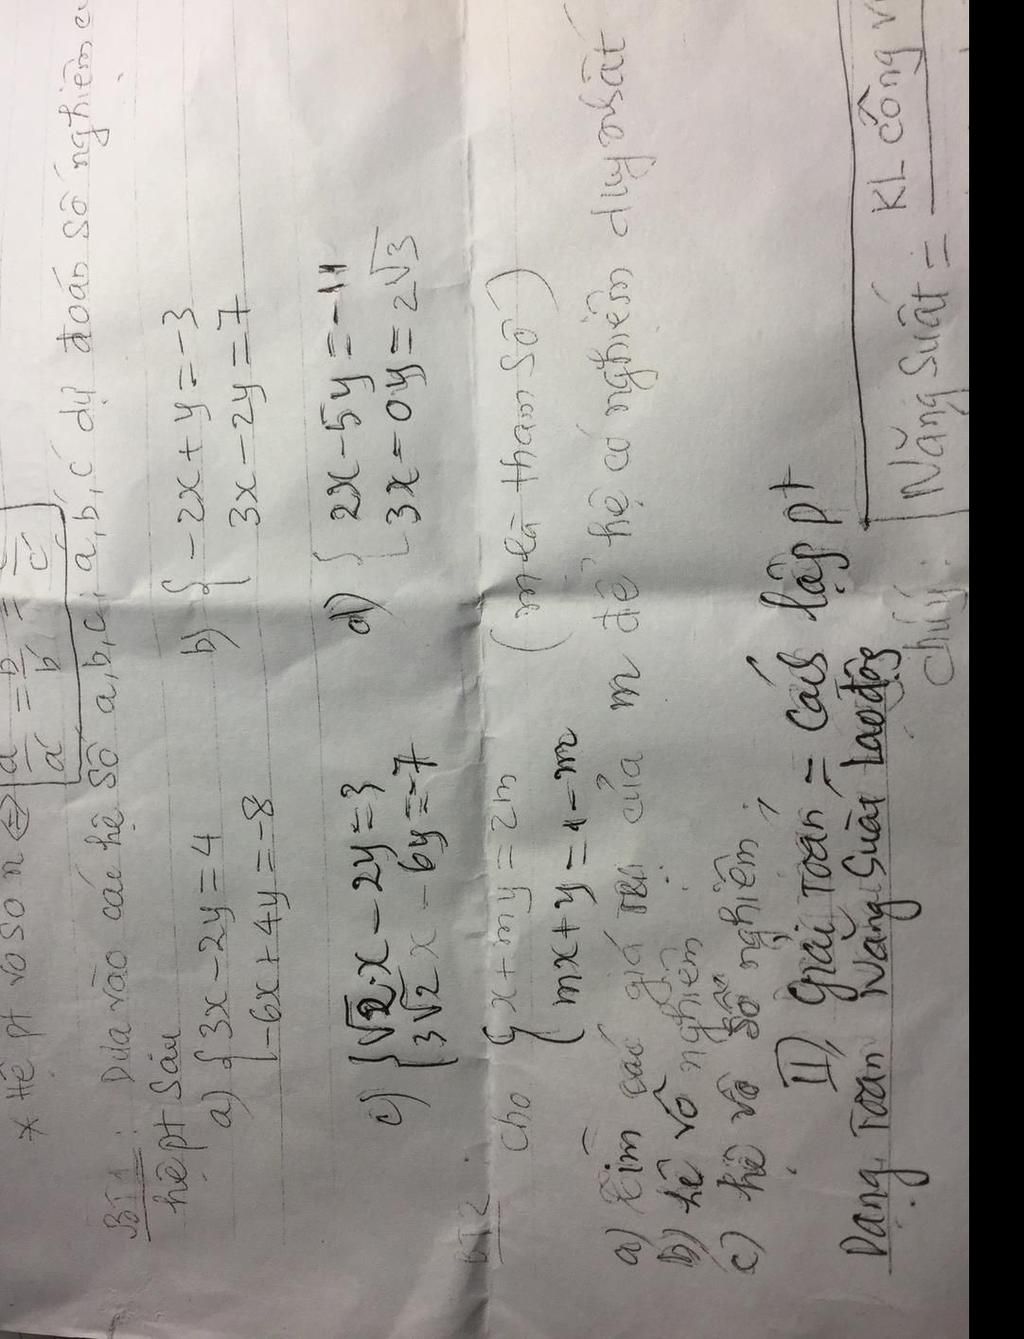 * Hệ pt vô số n ⇔ a/a' = b/b' = c/c'
BT1 : Dựa vào các hệ số a, b, c, a', b', c' dự đoán số nghiệm của
hệ pt sau
a) { 3x - 2y = 4
-6x + 4y = -8
b) { -2x + y = -3
3x - 2y = 7
c) { √2·x - 2y = 3
3√2 x - 6y = -7
d) { 2x - 5y = -11
3x - 0y = 2√3
BT2 . Cho { x + my = 2m
mx + y = 1 - m
(m là tham số)
a) tìm các giá trị của m để hệ có nghiệm duy nhất
b) hệ vô nghiệm
c) hệ vô số nghiệm ;
II) Giải Toán = Cách lập pt
Dạng Toán Năng Suất Lao động
Chú ý :
Năng Suất = KL công v